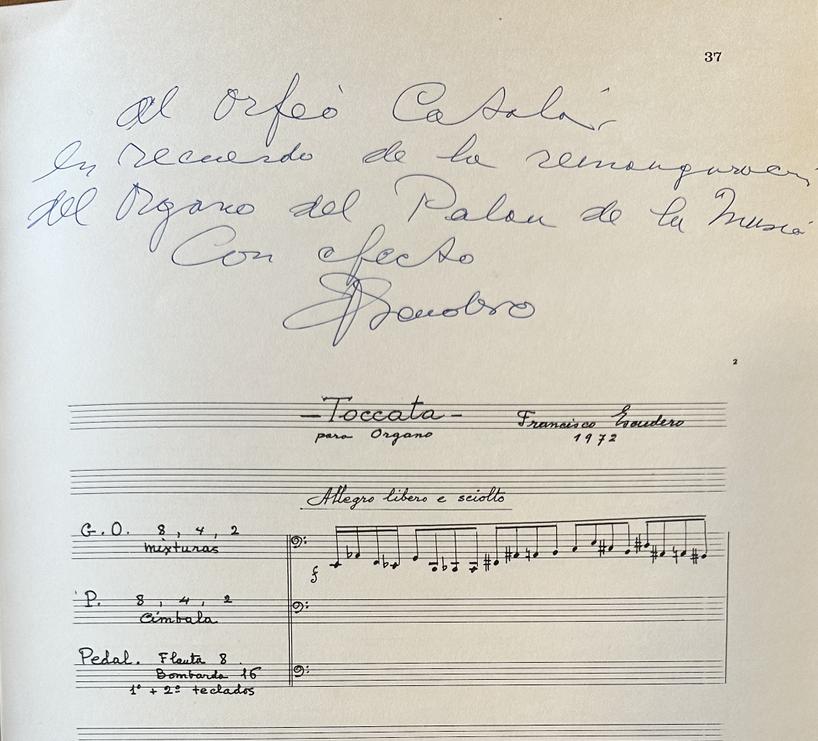 37
al Orfeó Català,
en recuerdo de la reinauguración
del Organo del Palau de la Musica
Con afecto
Escudero
2
-Toccata-
para Organo
Francisco Escudero
1972
Allegro libero e sciolto
G.O. 8, 4, 2
mixturas
f
P. 8, 4, 2
Címbala
Pedal. Flauta 8
Bombarda 16
1º + 2º teclados